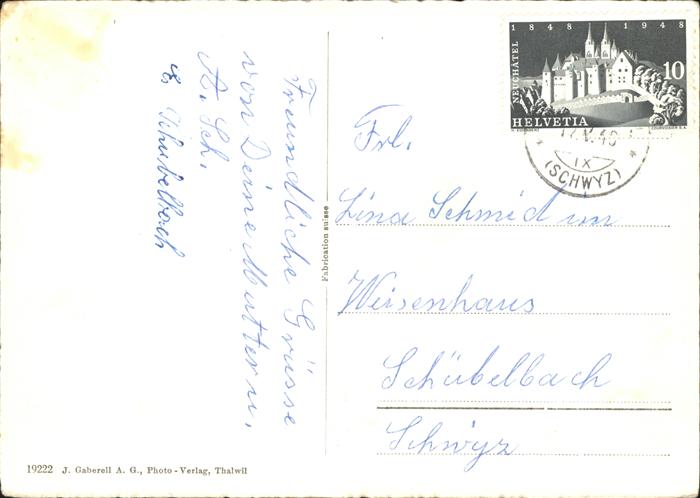 Freundliche Grüsse
von Deine Mutter u.
A. Sch.
Schübelbach
Fabrication suisse
1848 1948
NEUCHÂTEL
10
HELVETIA
COURVOISIER S.A.
IX
(SCHWYZ)
Frl.
Lina Schmid im
Weisenhaus
Schübelbach
Schwyz
19222 J. Gaberell A. G., Photo-Verlag, Thalwil